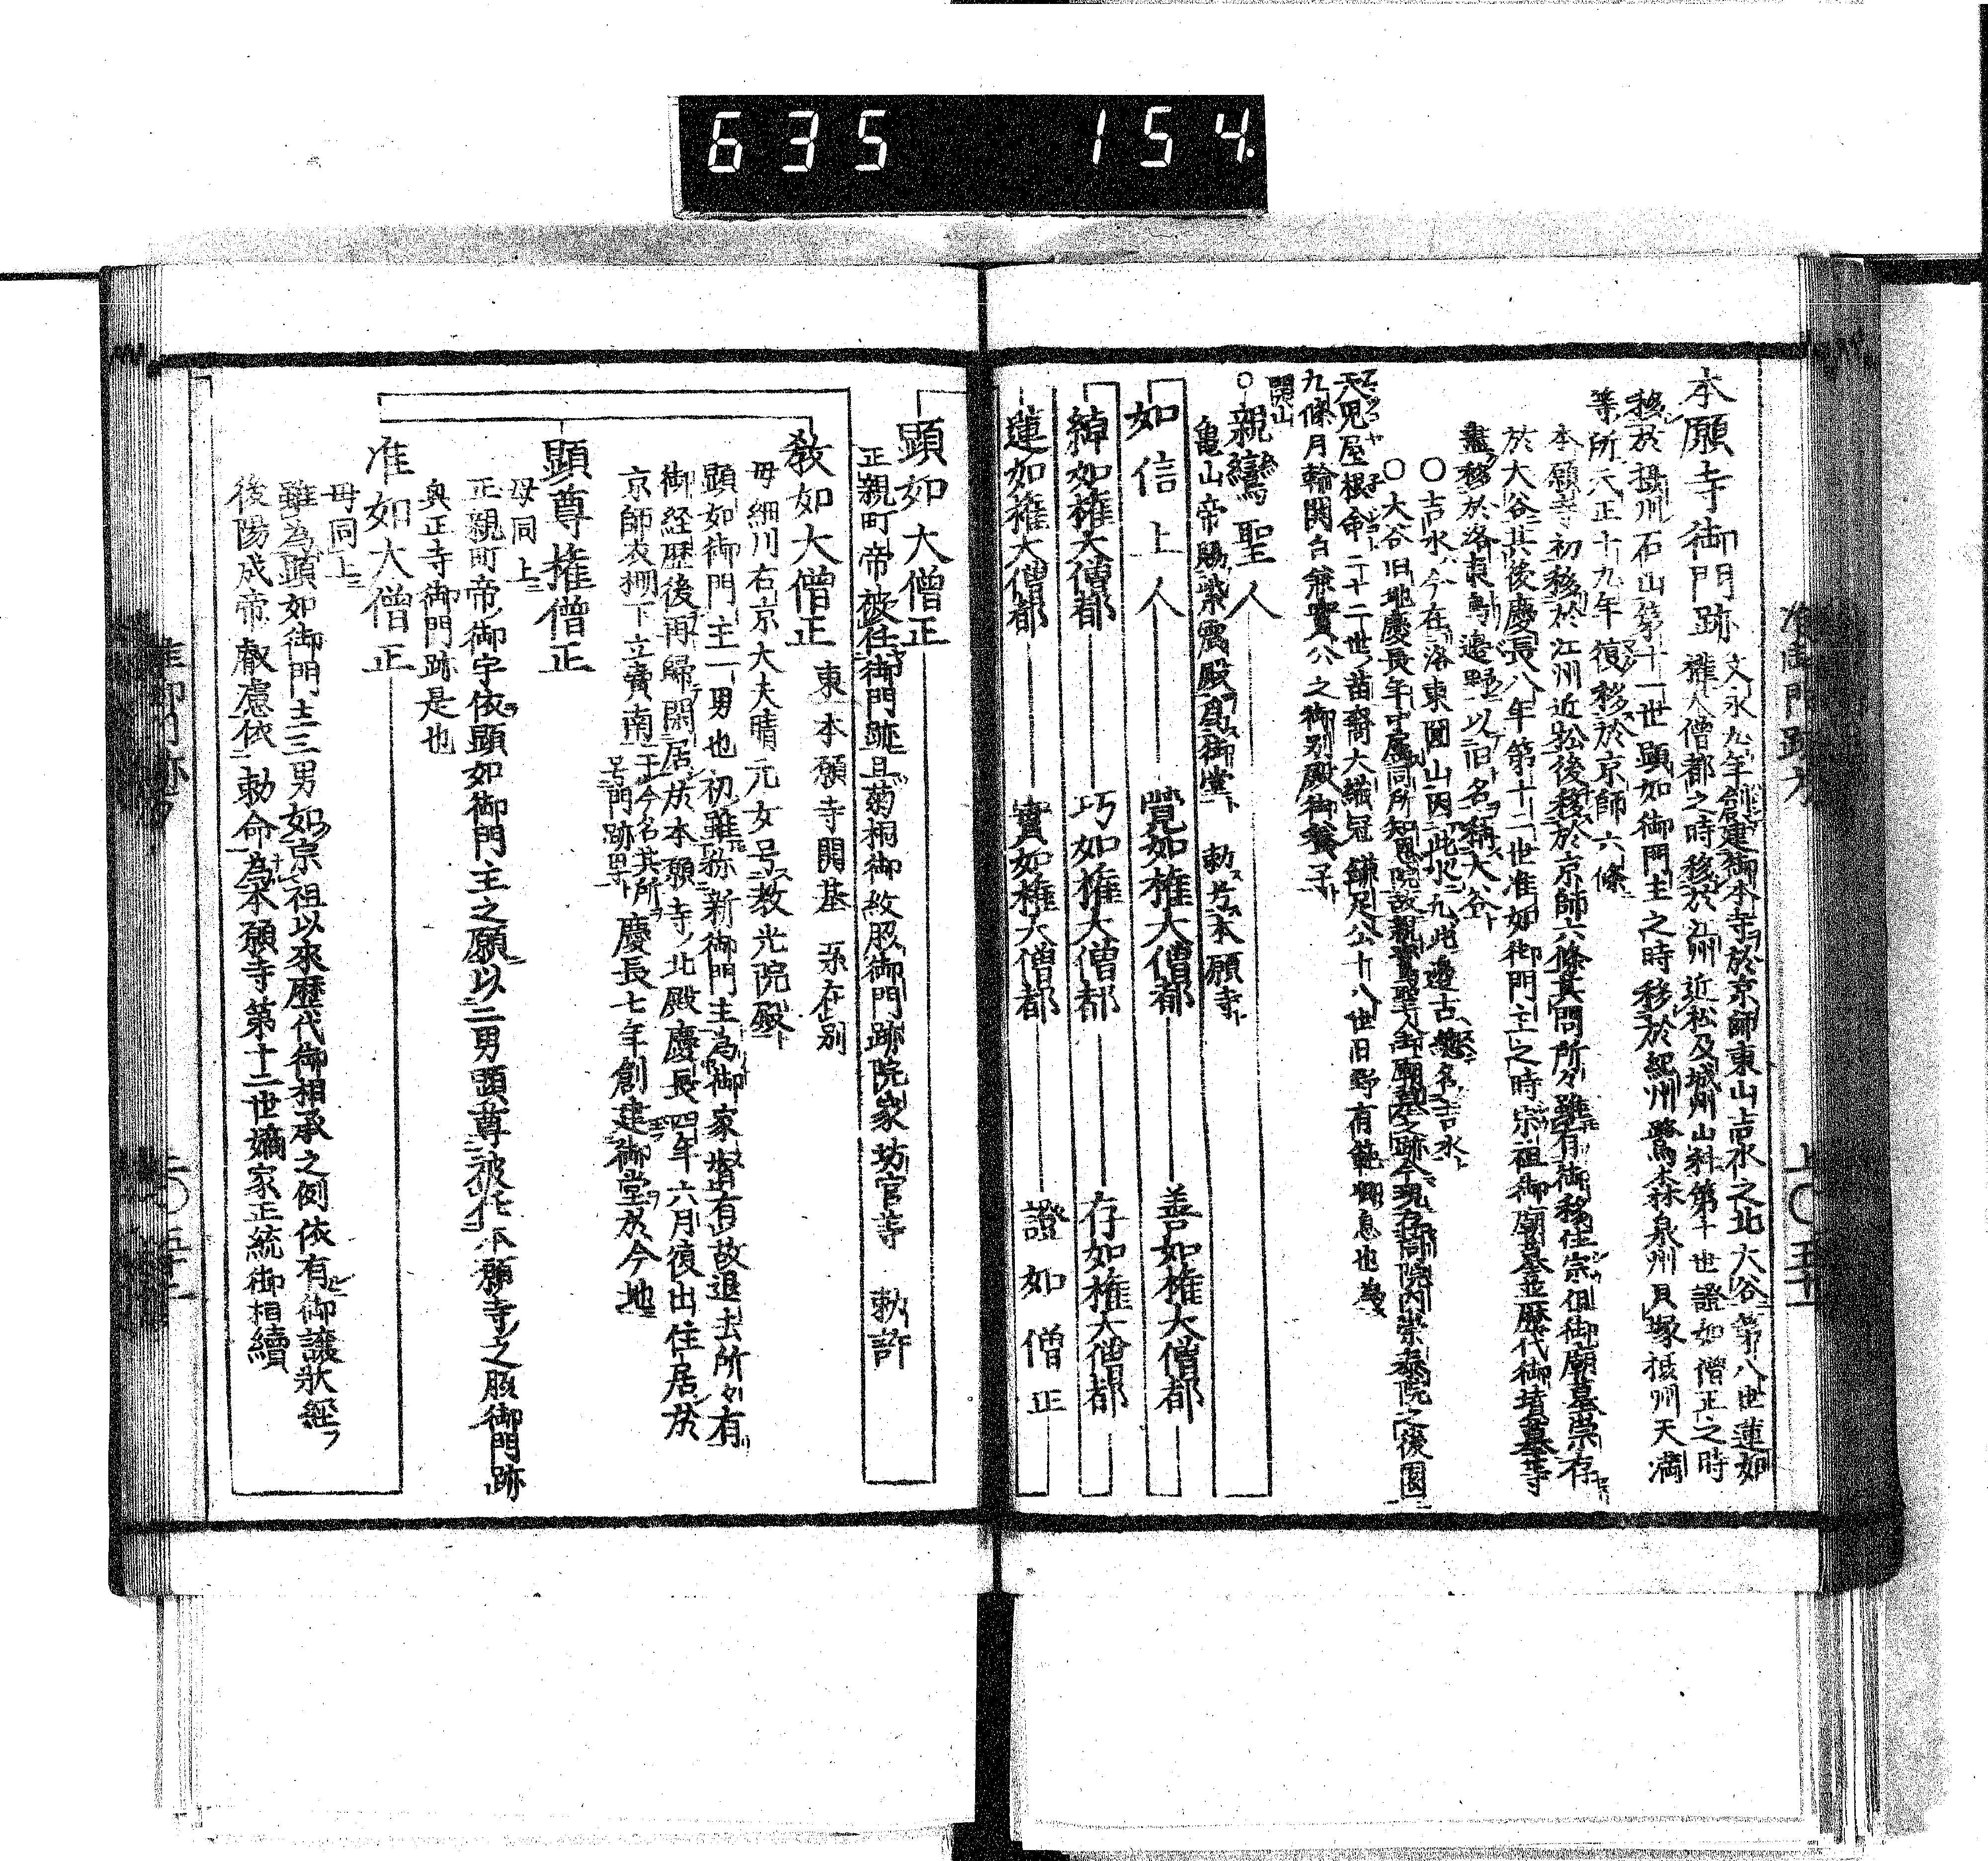 635 154
本願寺御門跡 文永九年創建御本寺於京師東山吉水之北大谷第八世蓮如
権大僧都之時移於江州近松及城州山科第十世證如僧正之時
移於摂州石山第十一世顕如御門主之時移於紀州鷺森泉州貝塚摂州天満
等所天正十九年復移於京師六條
本願寺初移於江州近松後移於京師六條其間所々雖有御移住宗祖御廟墓崇存
於大谷其後慶長八年第十二世准如御門主之時宗祖御廟墓並歴代御墳墓等
盡移於洛東鳥邊野以旧名称大谷
○吉水今在洛東圓山因此水凡此邊古総名吉水
○大谷旧地慶長年中属同所知恩院故親鸞聖人御廟墓之跡今現存同院内崇泰院之後園
天児屋根命二十二世苗裔大織冠鎌足公十八世日野有範卿息也為
九條月輪関白兼實公之御別殿御養子
開山
○親鸞聖人
亀山帝賜紫震殿為御堂 勅号本願寺
如信上人 覺如権大僧都 善如権大僧都
綽如権大僧都 巧如権大僧都 存如権大僧都
蓮如権大僧都 實如権大僧都 證如僧正
顕如大僧正
正親町帝被任御門跡且菊桐御紋服御門跡院家坊官等 勅許
教如大僧正 東本願寺開基 系在別
母細川右京大夫晴元女号教光院殿
顕如御門主一男也初雖称新御門主為御家督有故退去所々有
御経歴後再歸閑居於本願寺北殿慶長四年六月復出住居於
京師衣棚下立賣南 于今名其所号門跡町 慶長七年創建御堂於今地
顕尊権僧正
母同上
正親町帝御宇依顕如御門主之願以二男顕尊被任本願寺之脇御門跡
奥正寺御門跡是也
准如大僧正
母同上
雖為顕如御門主三男如宗祖以來歴代御相承之例依有御譲状經
後陽成帝叡慮依 勅命為本願寺第十二世嫡家正統御相續